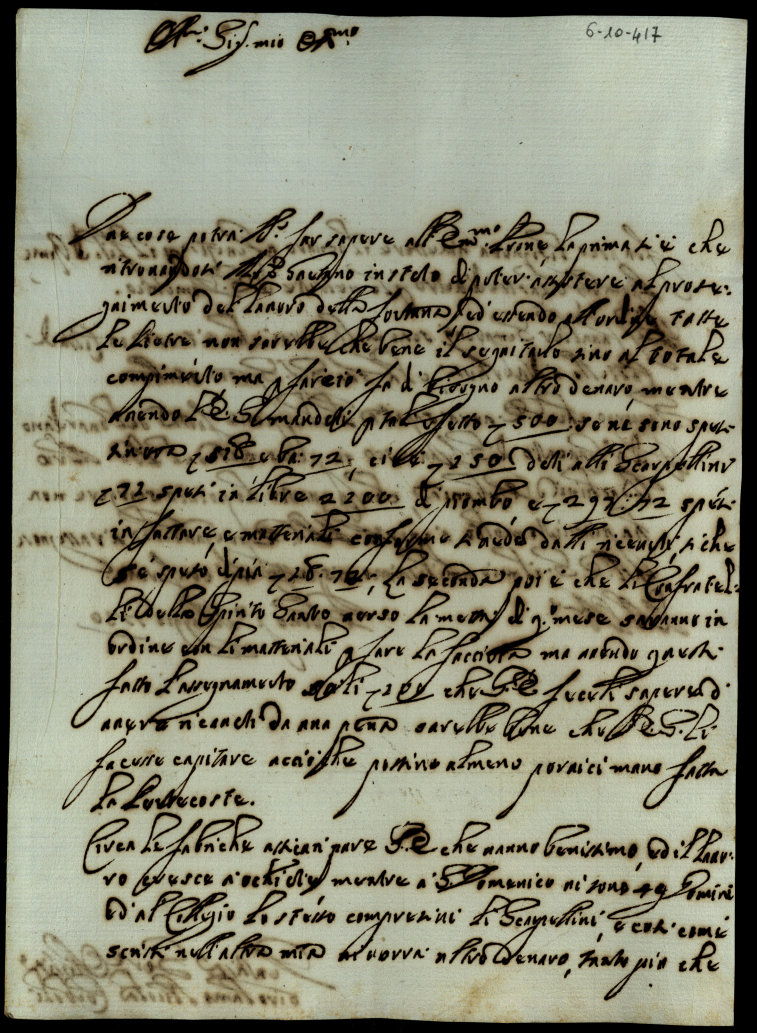 6-10-417
Sig. mio
Due cose potrà V.S. far sapere all'Em.mo Prone la prima si è che
ritrovandosi Gaetano in stato di poter assistere al prose-
guimento del lavoro della fontana, ed essendo all'ordine tutte
le pietre non sarebbe che bene il seguitarlo sino al totale
compimento ma p far ciò fa di bisogno altro denaro, mentre
avendo S.E. mandati p tal effetto 500 se ne sono spesi
sin ora 518 e ba: 72, cioè 150 dati alli Scarpellini
72 spesi in libre 2200 di piombo e 297:72 spesi
in fatture e materiali conforme si vede dalli che
s'è speso di più 18:72, la seconda poi è che li Confratel-
li dello Spirito Santo verso la metà di q.o mese saranno in
ordine con li materiali p fare la facciata ma avendo questi
fatto l'assegnamento delli 200 che S.E. fece li sapere di
da una sarebbe bene che S.E. li
facesse capitare acciò che possino almeno porvici mano fatta
la Pentecoste.
Circa le fabriche assicuri pure S.E. che vanno benissimo, ed il lavo-
ro cresce a occhiate mentre a S. Domenico vi sono 49 homini
ed al Collegio lo stesso compresivi li Scarpellini, e così come
scrissi nell'altra mia vi vorrà altro denaro, tanto più che